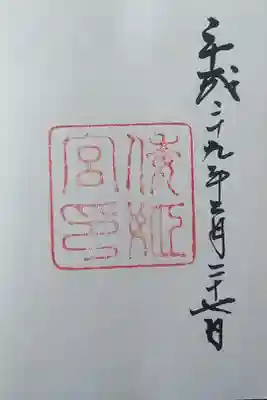 平成二十九年三月二十七日
倭姫
宮印